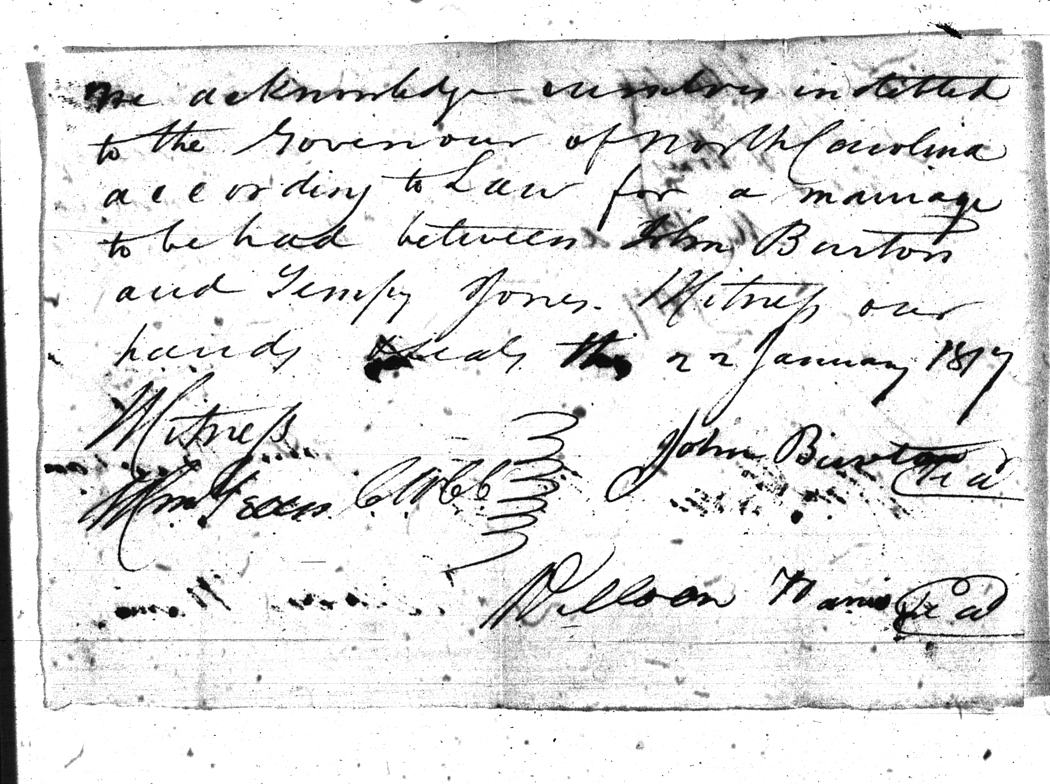 We acknowledge ourselves indetted
to the Govenour of North Carolina
according to Law for a marriage
to be had between John Burton
and Tempy Jones. Witness our
hands & seals this 22 January 1817
Witness
John Burton Seal
Wm
Willson Harris Seal